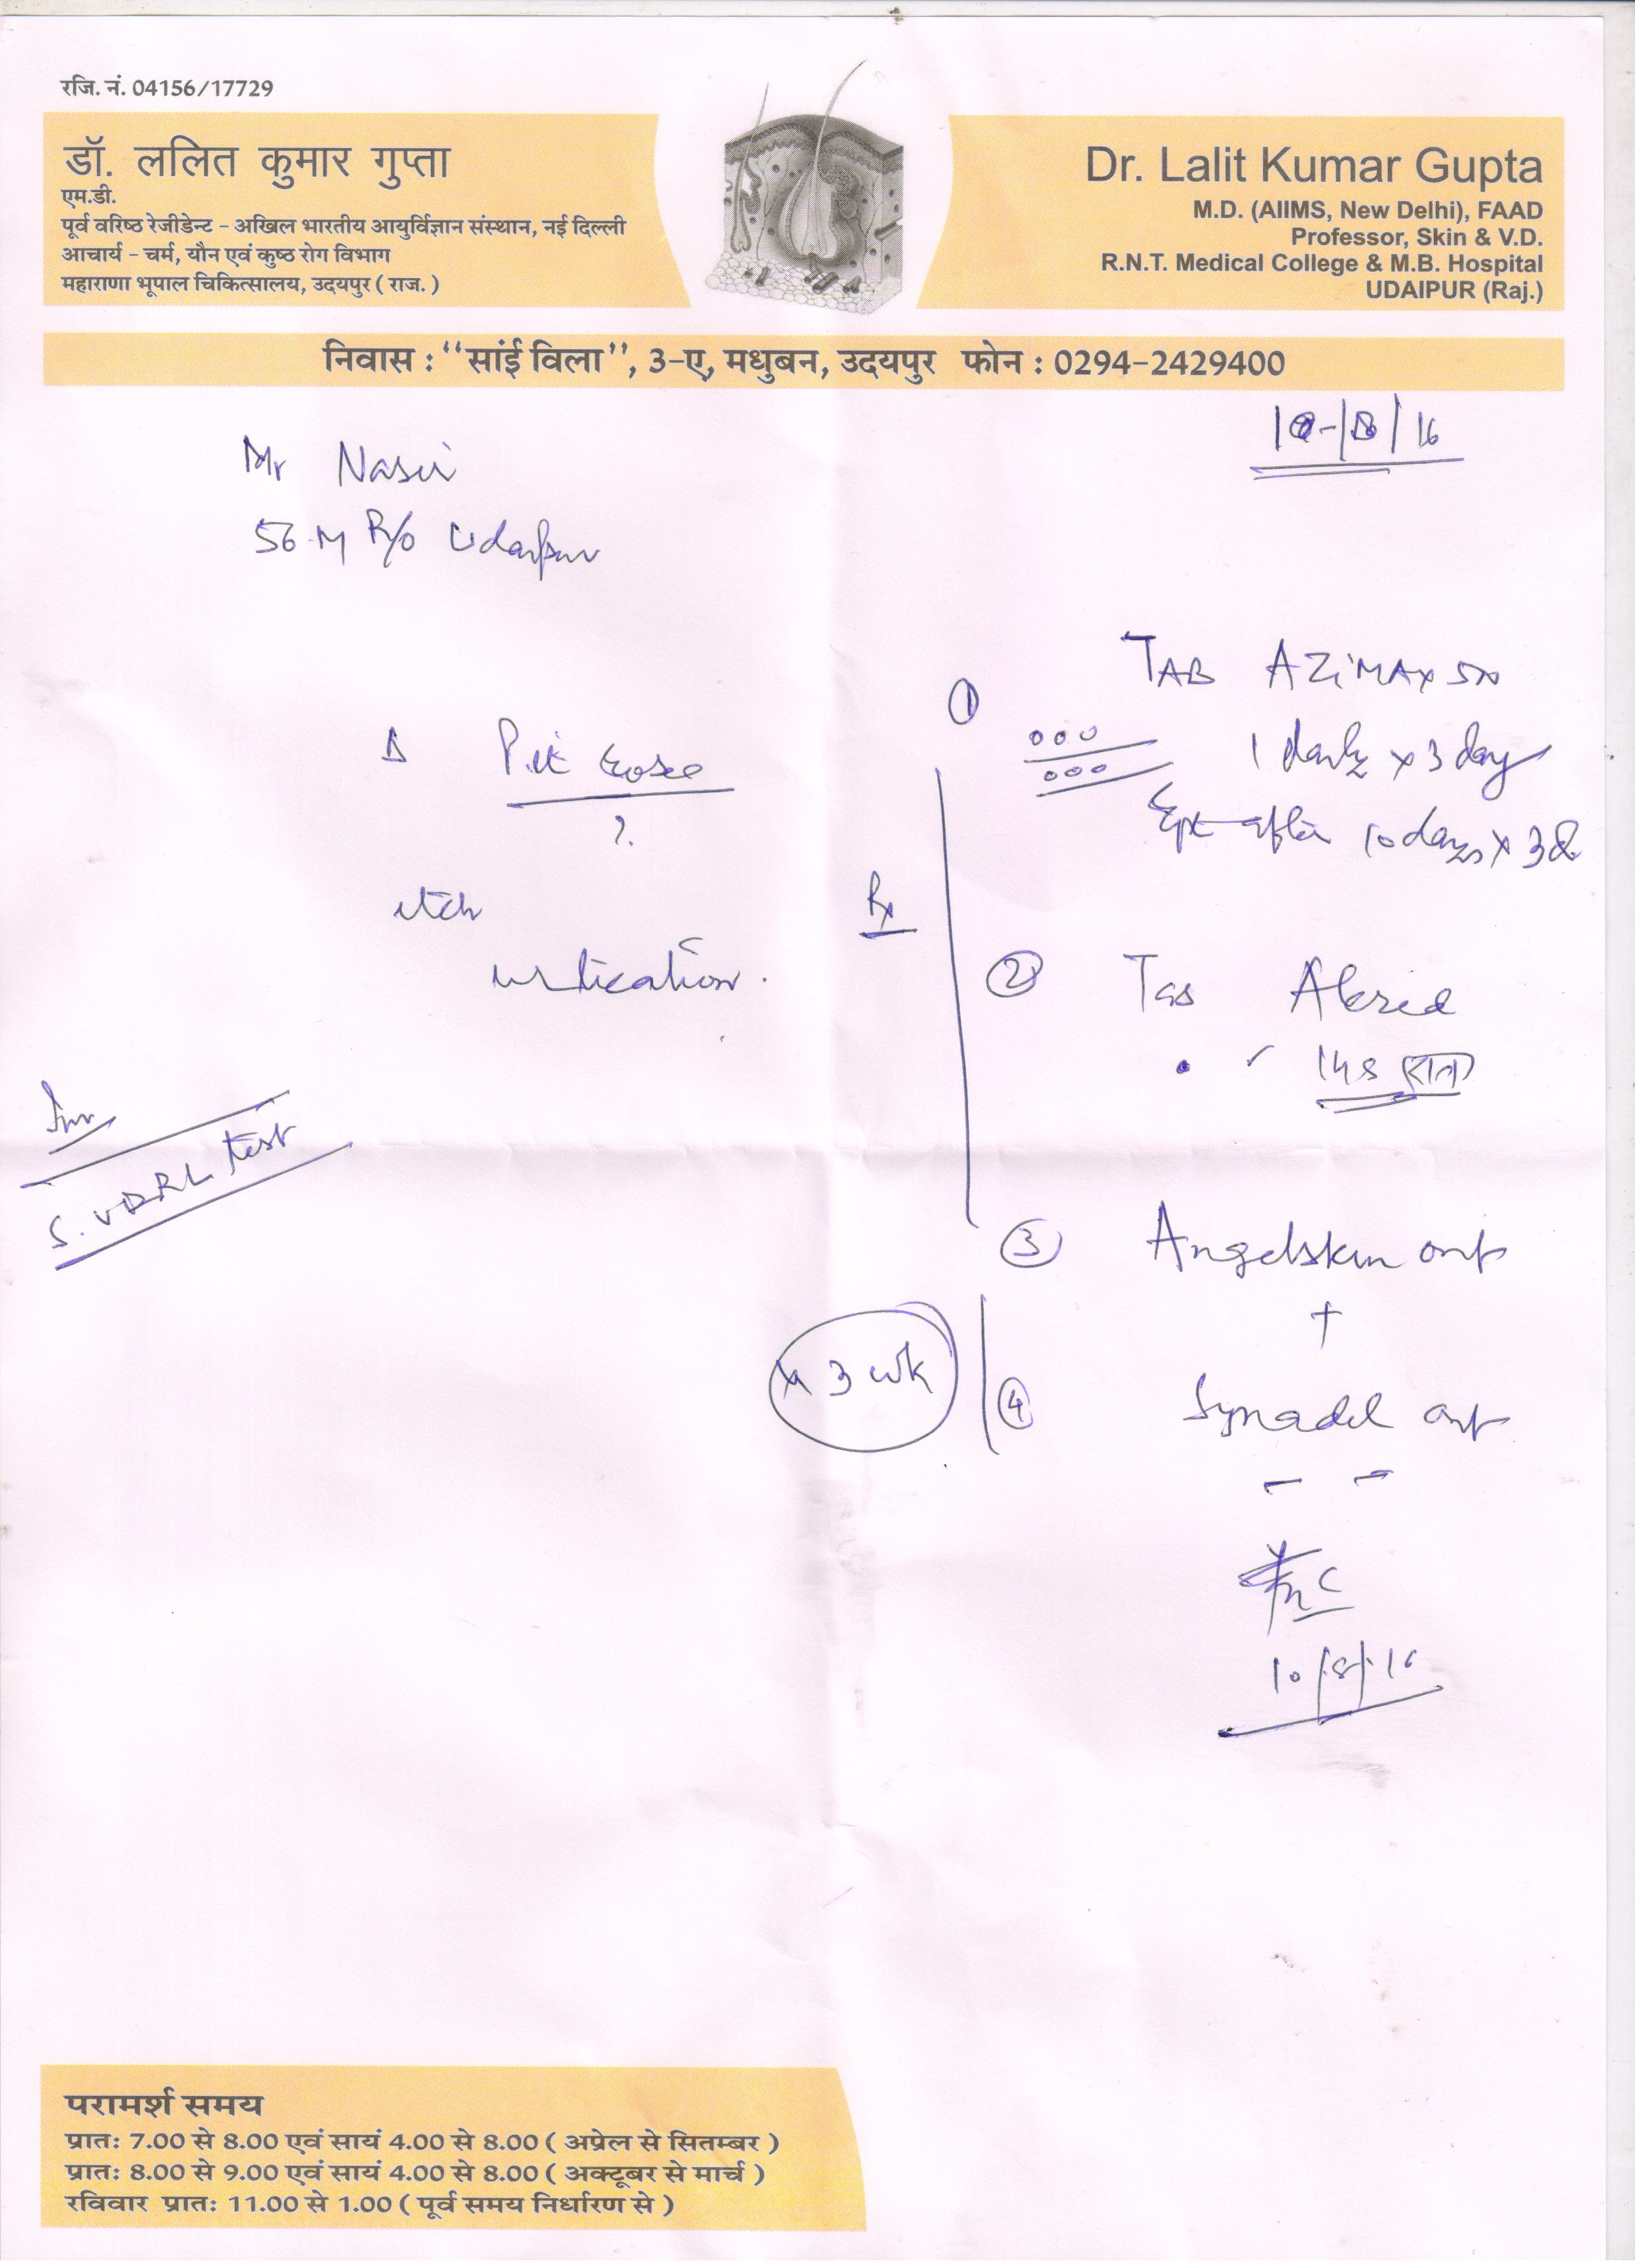 रजि. नं. 04156/17729
डॉ. ललित कुमार गुप्ता
एम.डी.
पूर्व वरिष्ठ रेजीडेन्ट - अखिल भारतीय आयुर्विज्ञान संस्थान, नई दिल्ली
आचार्य - चर्म, यौन एवं कुष्ठ रोग विभाग
महाराणा भूपाल चिकित्सालय, उदयपुर ( राज. )
Dr. Lalit Kumar Gupta
M.D. (AIIMS, New Delhi), FAAD
Professor, Skin & V.D.
R.N.T. Medical College & M.B. Hospital
UDAIPUR (Raj.)
निवास : "सांई विला", 3-ए, मधुबन, उदयपुर फोन : 0294-2429400
Mr Nasir
56 M R/o Udaipur
Δ Pit rosea
?
itch
urtication.
S. VDRL test
Rx
① TAB AZIMAX
1 daily x 3 day
after 10 days x 3d
②
रात
③ Angelskin oint
+
④ oint
x 3 wk
10/8/16
परामर्श समय
प्रातः 7.00 से 8.00 एवं सायं 4.00 से 8.00 ( अप्रेल से सितम्बर )
प्रातः 8.00 से 9.00 एवं सायं 4.00 से 8.00 ( अक्टूबर से मार्च )
रविवार प्रातः 11.00 से 1.00 ( पूर्व समय निर्धारण से )